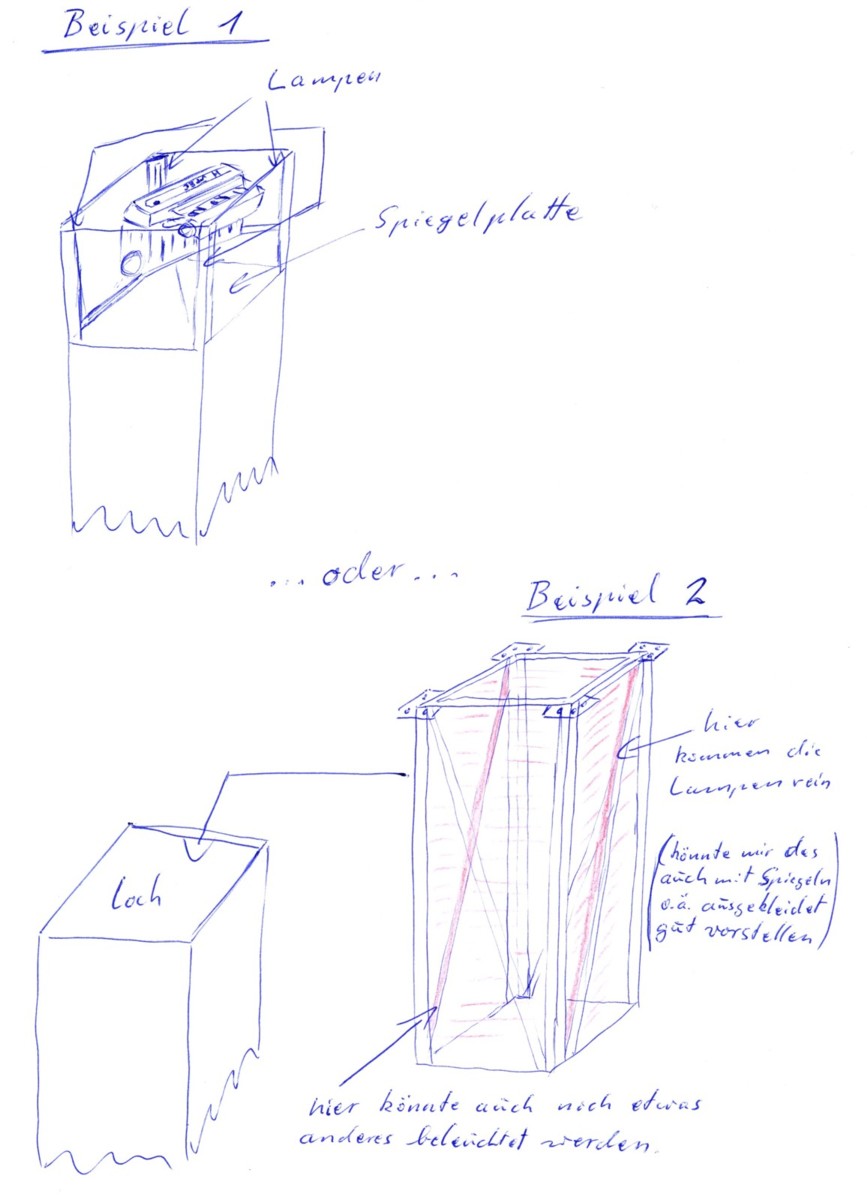 Beispiel 1
Lampen
Spiegelplatte
... oder ...
Beispiel 2
hier
kommen die
Lampen rein
(könnte mir das
auch mit Spiegeln
o.ä. ausgekleidet
gut vorstellen)
Loch
hier könnte auch noch etwas
anderes beleuchtet werden.